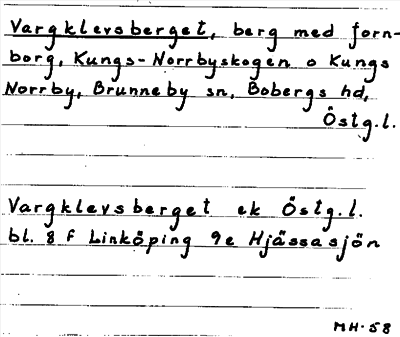 Vargklevsberget, berg med forn-
borg, Kungs-Norrbyskogen o Kungs
Norrby, Brunneby sn, Bobergs hd,
Östg.l.
Vargklevsberget ek Östg.l.
bl. 8 f Linköping 9e Hjässasjön
MH-58